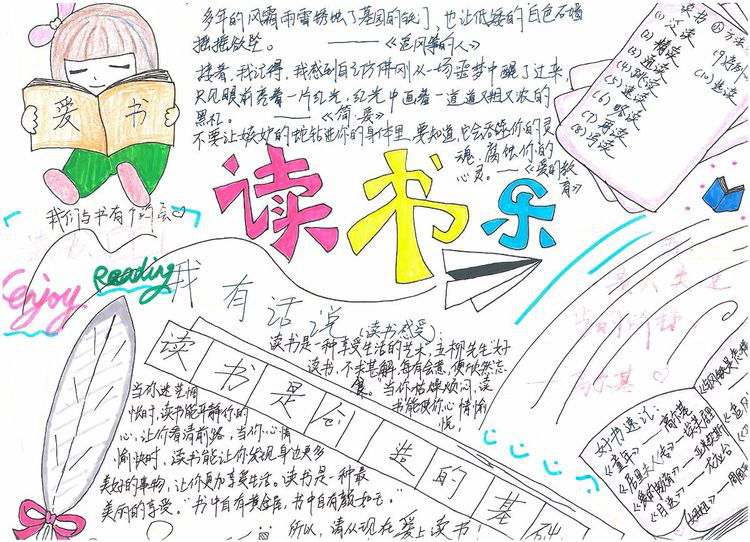 多年的风霜雨雪锈蚀了墓园的铁门，也让低矮的白色石墙
摇摇欲坠。——《追风筝的人》
接着，我记得，我感到自己仿佛刚从一场噩梦中醒了过来
只见眼前亮着一片红光，红光中画着一道道又粗又浓的
黑杠。——《简·爱》
不要让嫉妒的蛇钻进你的身体里，要知道，它会吞噬你的灵
魂，腐蚀你的
心灵。——《爱的教
育》
爱 书
我们与书有个约会
读书
方法
(1)
(2)精读
(3)通读
(4)跳读
(5)速读
(6)略读
(7)再读
(8)写读
(9)
(10)选读
读书乐
Enjoy Reading
我有话说（读书感受）
读书是一种享受生活的艺术，五柳先生“好
读书，不求甚解，每有会意，便欣然忘
食”。当你枯燥烦闷，读
书能使你心情愉
悦；
当你迷茫惆
怅时，读书能平静你的
心，让你看清前路；当你心情
愉快时，读书能让你发现身边更多
美好的事物，让你更加享受生活。读书是一种最
美丽的享受。“书中自有黄金屋，书中自有颜如玉。”
所以，请从现在爱上读书！
读书是创造的基础
当时的
——高尔基
好书速记：
《童年》——高尔基